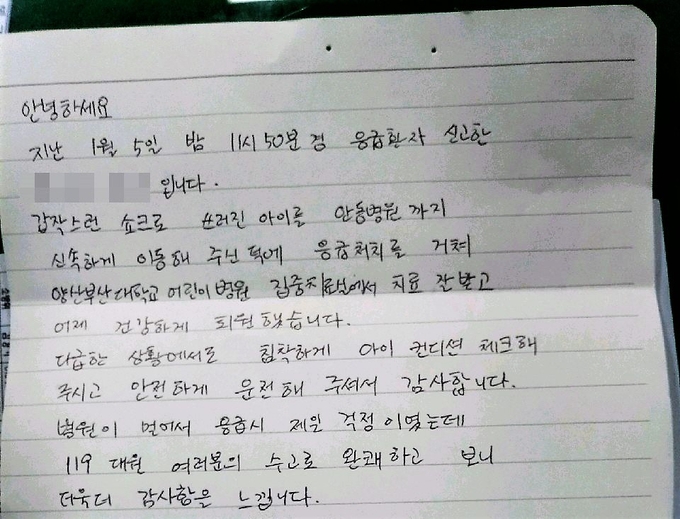 안녕하세요
지난 1월 5일 밤 11시 50분 경 응급환자 신고한
입니다.
갑작스런 쇼크로 쓰러진 아이를 안동병원까지
신속하게 이동해 주신 덕에 응급처치를 거쳐
양산부산대학교 어린이병원 집중치료실에서 치료 잘받고
어제 건강하게 퇴원했습니다.
다급한 상황에서도 침착하게 아이 컨디션 체크해
주시고 안전하게 운전해 주셔서 감사합니다.
병원이 멀어서 응급시 제일 걱정이였는데
119 대원 여러분의 수고로 완쾌하고 보니
더욱더 감사함을 느낍니다.